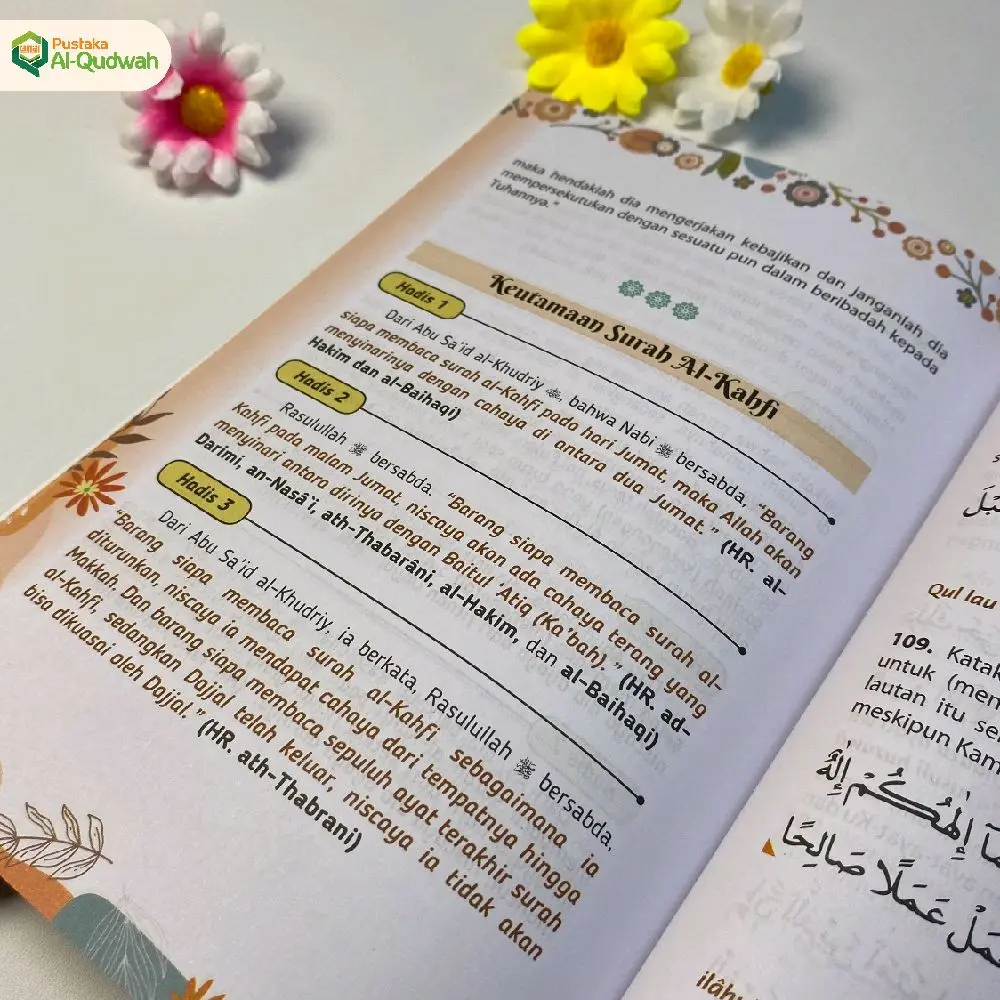 Pustaka
Al-Qudwah
maka hendaklah dia mengerjakan kebajikan dan janganlah dia
mempersekutukan dengan sesuatu pun dalam beribadah kepada
Tuhannya."
Keutamaan Surah Al-Kahfi
Hadis 1
Dari Abu Sa'id al-Khudriy, bahwa Nabi ﷺ bersabda, "Barang
siapa membaca surah al-Kahfi pada hari Jumat, maka Allah akan
menyinarinya dengan cahaya di antara dua Jumat." (HR. al-
Hakim dan al-Baihaqi)
Hadis 2
Rasulullah ﷺ bersabda, "Barang siapa membaca surah al-
Kahfi pada malam Jumat, niscaya akan ada cahaya terang yang
menyinari antara dirinya dengan Baitul 'Atiq (Ka'bah)." (HR. ad-
Darimi, an-Nasâ'i, ath-Thabarâni, al-Hakim, dan al-Baihaqi)
Hadis 3
Dari Abu Sa'id al-Khudriy, ia berkata, Rasulullah ﷺ bersabda,
"Barang siapa membaca surah al-Kahfi sebagaimana ia
diturunkan, niscaya ia mendapat cahaya dari tempatnya hingga
Makkah. Dan barang siapa membaca sepuluh ayat terakhir surah
al-Kahfi, sedangkan Dajjal telah keluar, niscaya ia tidak akan
bisa dikuasai oleh Dajjal." (HR. ath-Thabrani)
Qul lau
109. Katak
untuk (men
lautan itu se
meskipun Kam
إِلٰهُكُمْ إِلٰهٌ
عَمَلًا صَالِحًا
ilâhu